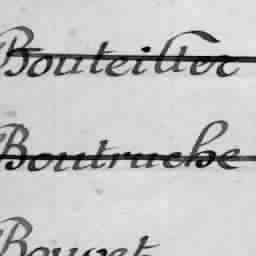 Bouteiller
Boutruche
Bouvet